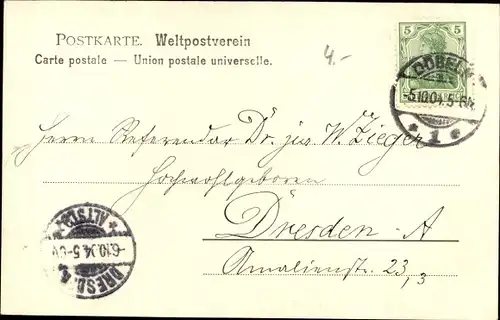 POSTKARTE. Weltpostverein
Carte postale — Union postale universelle.
4.-
5 5
DÖBELN
-5.10.04.5-6N.
* 1 *
Herrn Referendar Dr. jur. W. Zieger
Hochwohlgeboren
Dresden-A
Amalienstr. 23, 3
ALTST.
6.10.04.5-6V
DRESD